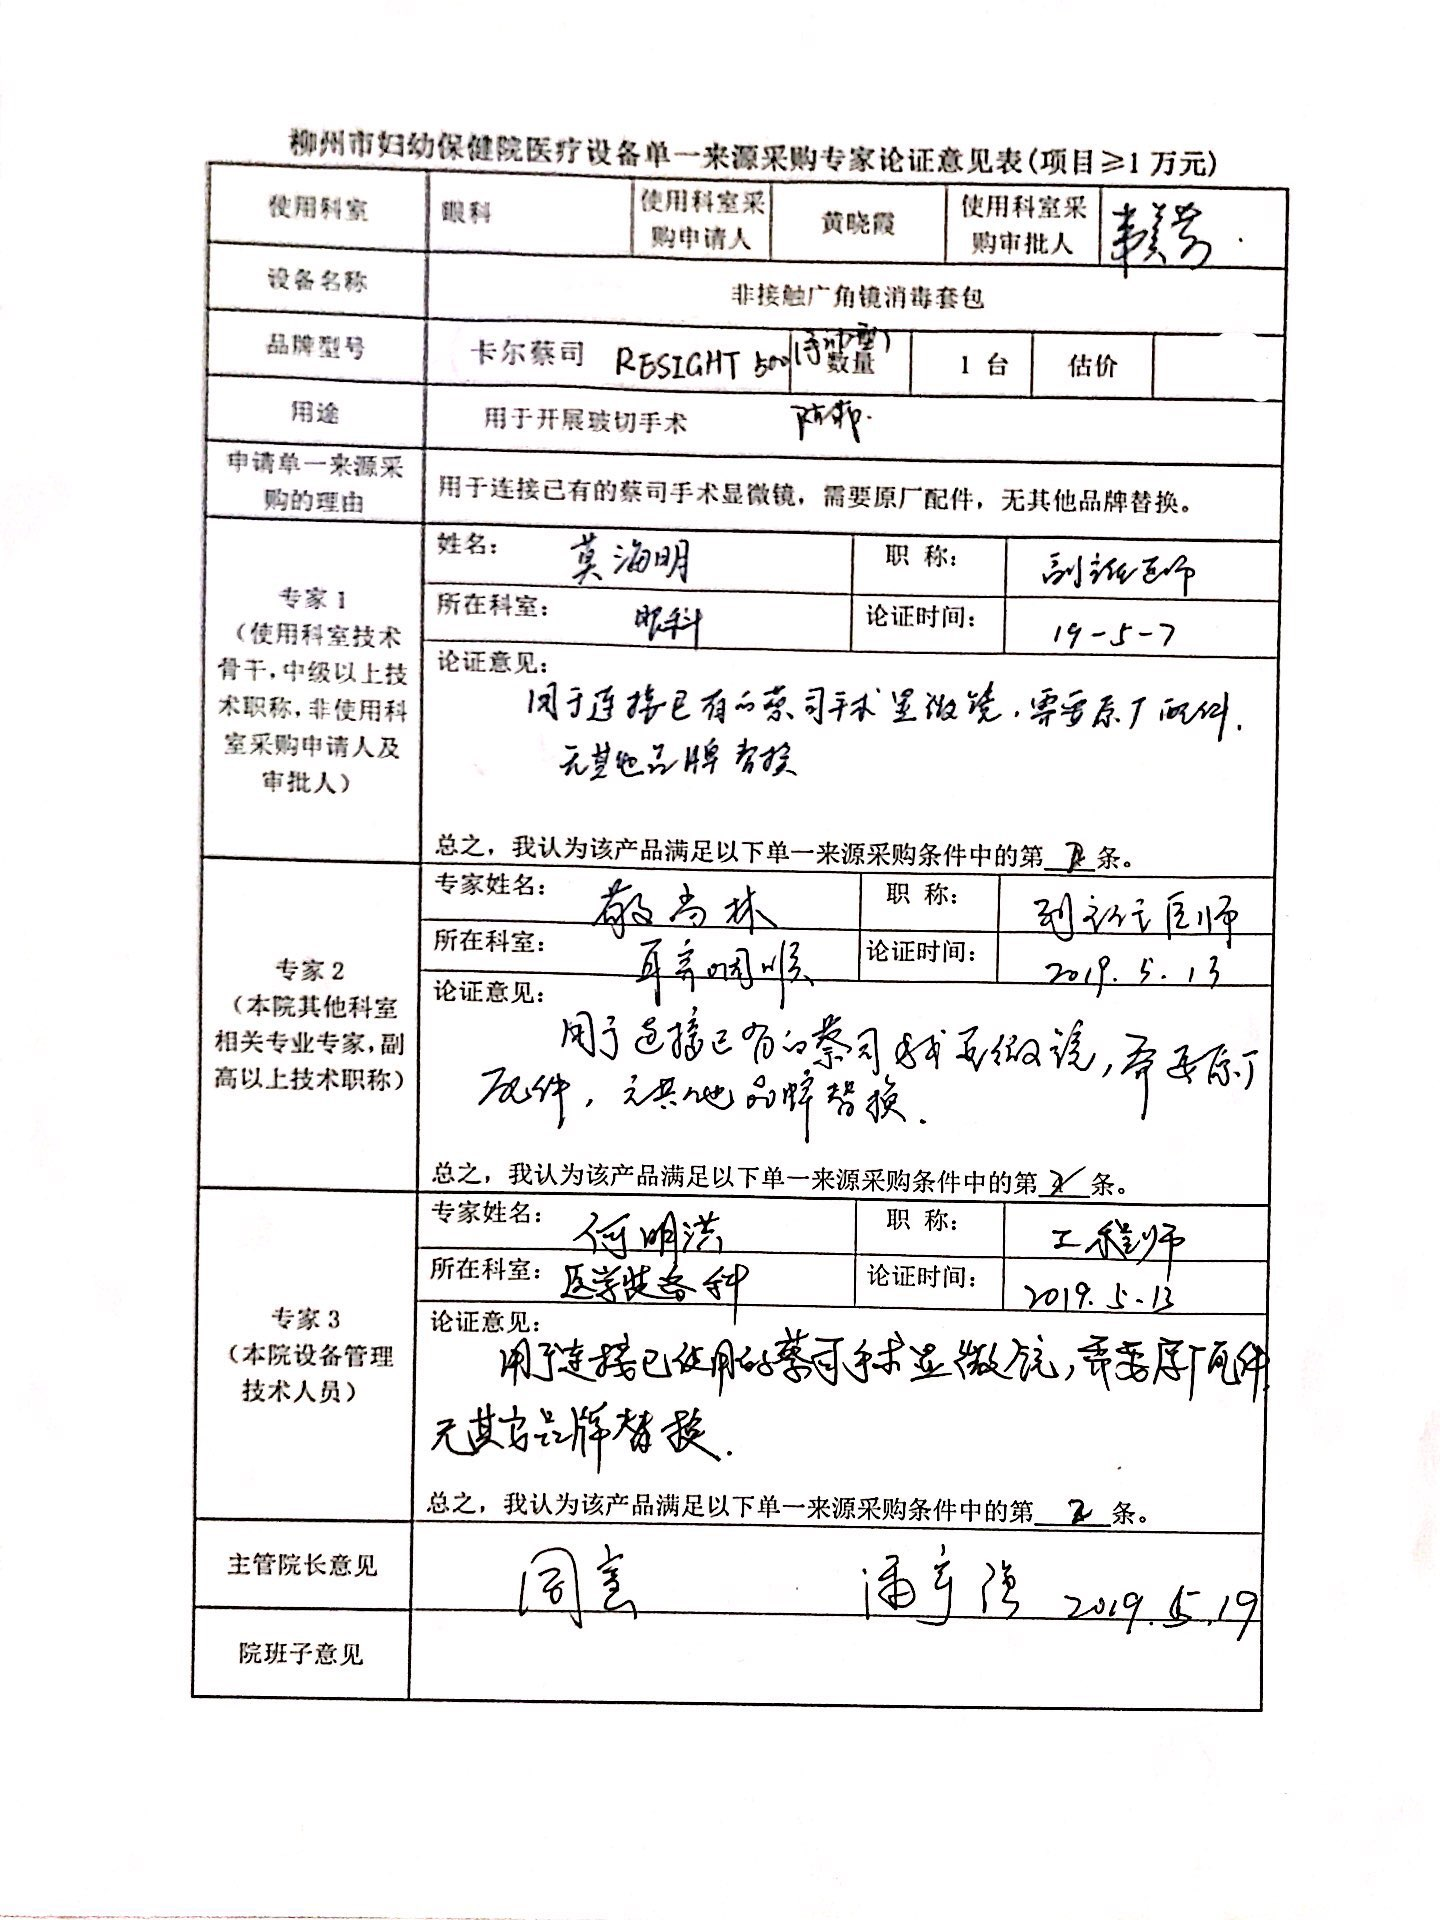 柳州市妇幼保健院医疗设备单一来源采购专家论证意见表(项目≥1万元)
使用科室 眼科 使用科室采购申请人 黄晓霞 使用科室采购审批人
设备名称 非接触广角镜消毒套包
品牌型号 卡尔蔡司 RESIGHT 500 (手动型) 数量 1 台 估价
用途 用于开展玻切手术
申请单一来源采购的理由 用于连接已有的蔡司手术显微镜，需要原厂配件，无其他品牌替换。
专家 1
（使用科室技术
骨干，中级以上技
术职称，非使用科
室采购申请人及
审批人）
姓名： 莫海明 职 称： 副主任医师
所在科室： 眼科 论证时间： 19-5-7
论证意见：
用于连接已有的蔡司手术显微镜，需要原厂配件，
无其他品牌替换
总之，我认为该产品满足以下单一来源采购条件中的第 2 条。
专家 2
（本院其他科室
相关专业专家，副
高以上技术职称）
专家姓名： 尚林 职 称： 副主任医师
所在科室： 耳鼻咽喉 论证时间： 2019.5.13
论证意见：
用于连接已有的蔡司手术显微镜，需要原厂
配件，无其他品牌替换.
总之，我认为该产品满足以下单一来源采购条件中的第 2 条。
专家 3
（本院设备管理
技术人员）
专家姓名： 何明洪 职 称： 工程师
所在科室： 医学装备科 论证时间： 2019.5-13
论证意见：
用于连接已使用的蔡司手术显微镜，需要原厂配件，
无其它品牌替换.
总之，我认为该产品满足以下单一来源采购条件中的第 2 条。
主管院长意见 同意 潘宇强 2019.5.19
院班子意见